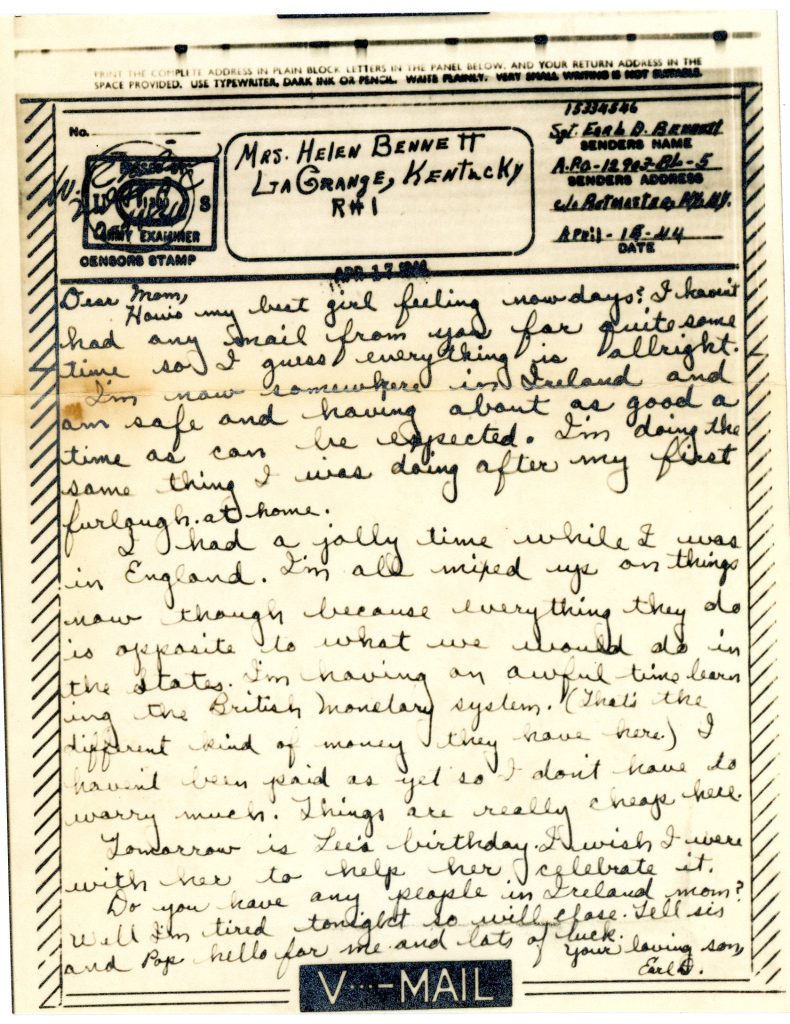 PRINT THE COMPLETE ADDRESS IN PLAIN BLOCK LETTERS IN THE PANEL BELOW, AND YOUR RETURN ADDRESS IN THE
SPACE PROVIDED. USE TYPEWRITER, DARK INK OR PENCIL. WRITE PLAINLY. VERY SMALL WRITING IS NOT SUITABLE.
No.
U S
ARMY EXAMINER
CENSORS STAMP
MRS. HELEN BENNETT
LaGRANGE, KENTUCKY
R#1
15234546
Sgt. EARL D. BENNETT
SENDERS NAME
A.P.O-12907-BL-5
SENDERS ADDRESS
c/o POSTMASTER, N.Y.
APRIL-15-44
DATE
APR 17
Dear Mom,
How's my best girl feeling nowdays? I haven't
had any mail from you for quite some
time so I guess everything is allright.
I'm now somewhere in Ireland and
am safe and having about as good a
time as can be expected. I'm doing the
same thing I was doing after my first
furlough at home.
I had a jolly time while I was
in England. I'm all mixed up on things
now though because everything they do
is opposite to what we would do in
the states. I'm having an awful time learn
ing the British Monetary system. (That's the
different kind of money they have here.) I
haven't been paid as yet so I don't have to
worry much. Things are really cheap here.
Tomorrow is Lee's birthday. I wish I were
with her to help her celebrate it.
Do you have any people in Ireland mom?
Well I'm tired tonight so will close. Tell sis
and Pop hello for me and lots of luck.
Your loving son,
Earl D.
V···—MAIL